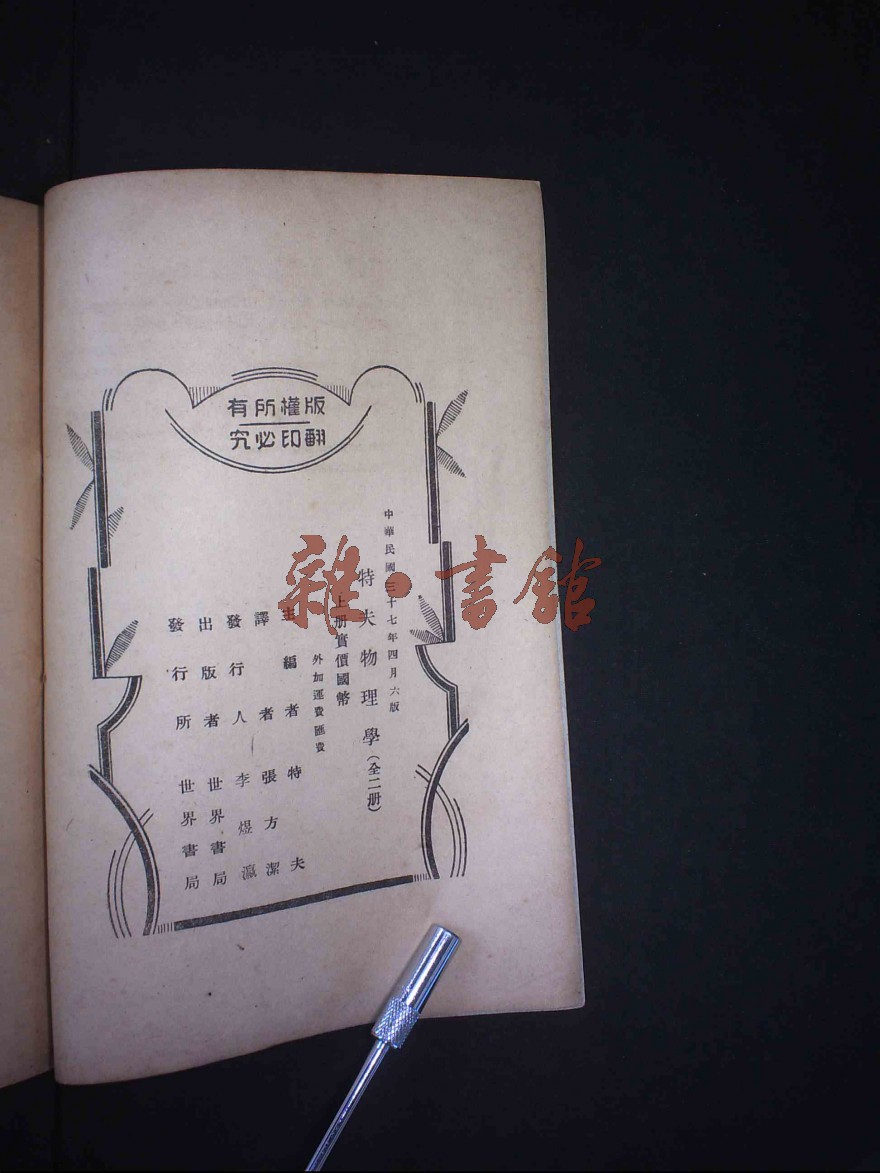 版權所有
翻印必究
中華民國三十七年四月六版
特夫物理學(全二册)
上册實價國幣
外加運費匯費
主編者 特夫
譯者 張方潔
發行人 李煜瀛
出版者 世界書局
發行所 世界書局
雜·書館